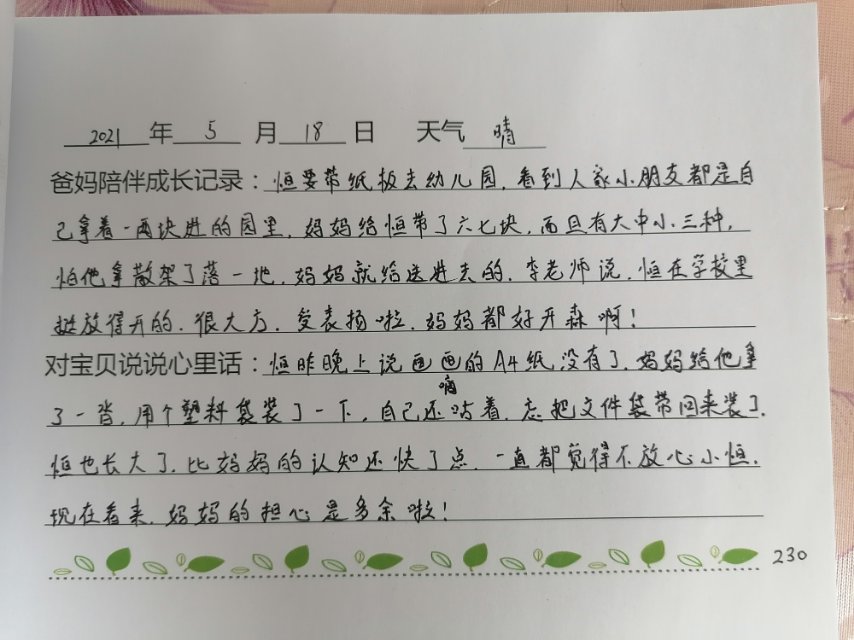 2021 年 5 月 18 日 天气 晴
爸妈陪伴成长记录：恒要带纸板去幼儿园，看到人家小朋友都是自
己拿着一两块进的园里，妈妈给恒带了六七块，而且有大中小三种，
怕他拿散架了落一地，妈妈就给送进去的，李老师说，恒在学校里
挺放得开的，很大方，受表扬啦，妈妈都好开森啊！
对宝贝说说心里话：恒昨晚上说画画的A4纸没有了，妈妈给他拿
了一沓，用个塑料袋装了一下，自己还嘀咕着，忘把文件袋带回来装了，
恒也长大了，比妈妈的认知还快了点，一直都觉得不放心小恒，
现在看来，妈妈的担心是多余啦！
230